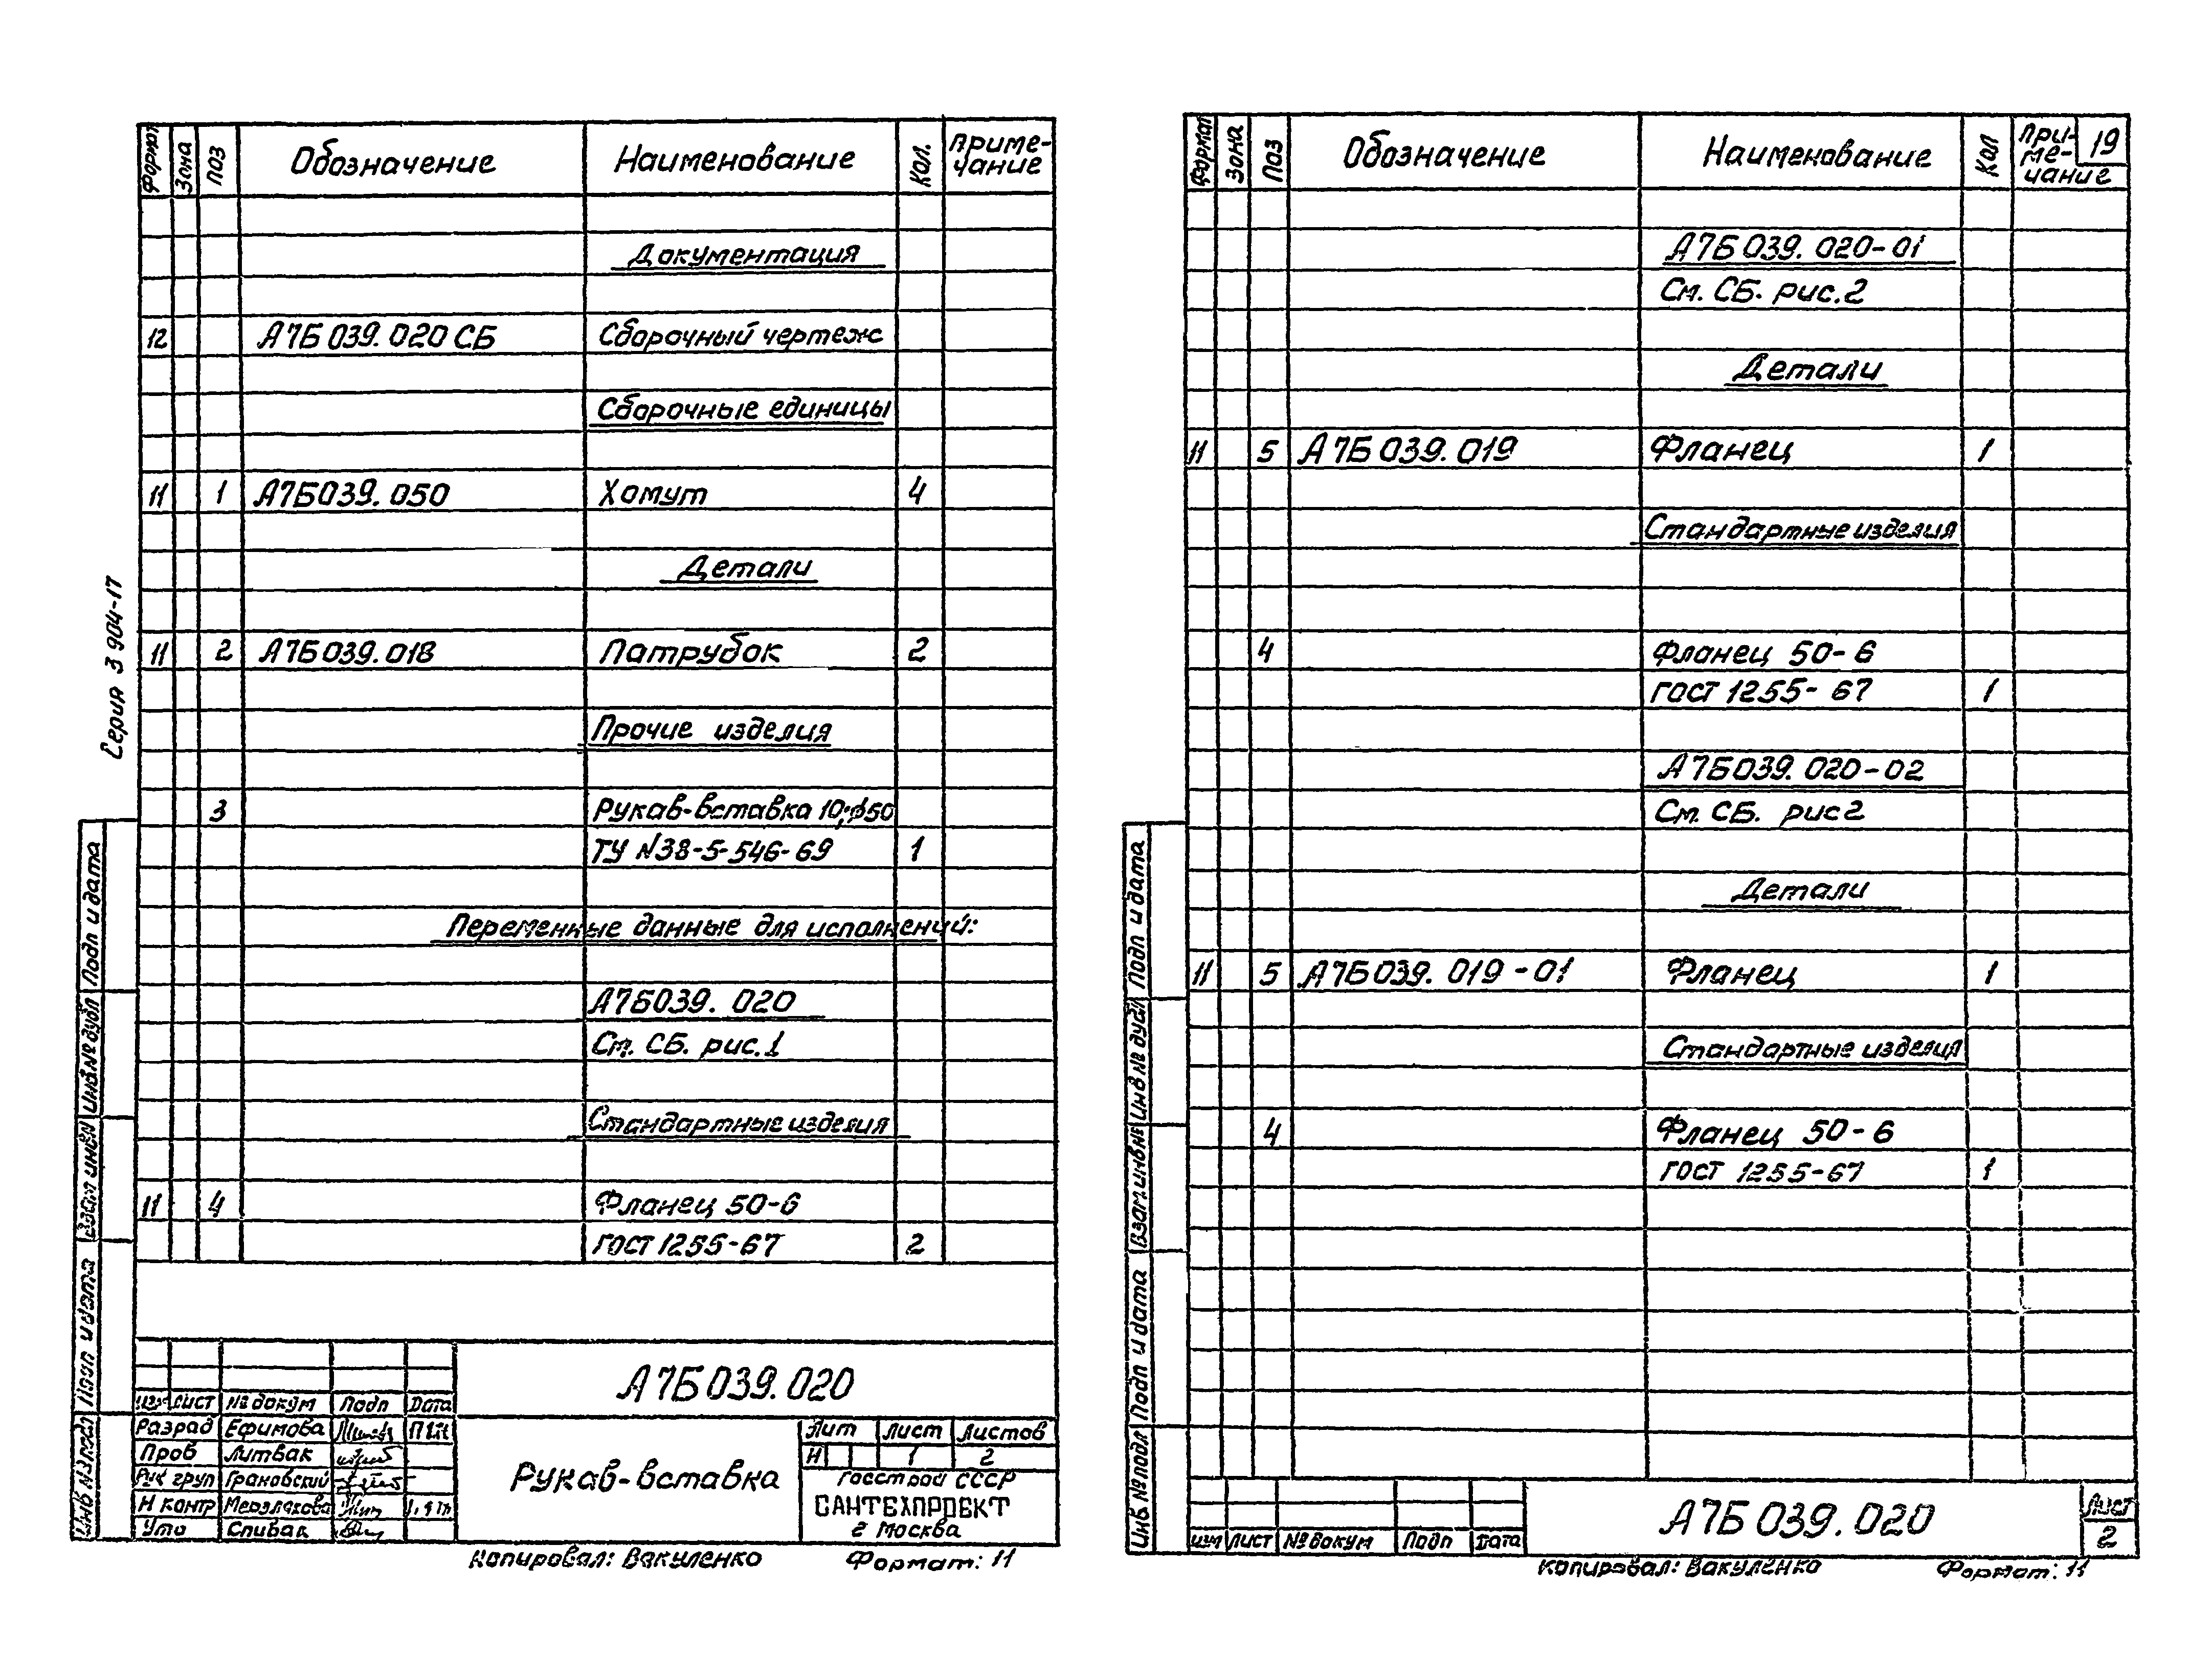 Формат Зона Поз Обозначение Наименование Кол. Приме-
чание
Документация
12 А7Б 039.020 СБ Сборочный чертеж
Сборочные единицы
11 1 А7Б039.050 Хомут 4
Детали
11 2 А7Б039.018 Патрубок 2
Прочие изделия
3 Рукав-вставка 10;ф50
ТУ N38-5-546-69 1
Переменные данные для исполнений:
А7Б039.020
См. СБ. рис.1
Стандартные изделия
11 4 Фланец 50-6
ГОСТ 1255-67 2
Серия 3 904-17
Подп и дата
Инв № дубл
Взам инв №
Подп и дата
Инв № подл
А7Б039.020
Изм Лист № докум Подп Дата
Разраб Ефимова
Пров Литвак
Рук груп Грановский
Н контр Мерзлякова
Утв Спивак
Рукав-вставка
Лит Лист Листов
Н 1 2
Госстрой СССР
САНТЕХПРОЕКТ
г Москва
Копировал: Вакуленко Формат: 11
Формат Зона Поз Обозначение Наименование Кол При-
ме-
чание
19
А7Б 039.020-01
См. СБ. рис.2
Детали
11 5 А7Б039.019 Фланец 1
Стандартные изделия
4 Фланец 50-6
ГОСТ 1255-67 1
А7Б039.020-02
См. СБ. рис 2
Детали
11 5 А7Б039.019-01 Фланец 1
Стандартные изделия
4 Фланец 50-6
ГОСТ 1255-67 1
Подп и дата
Инв № дубл
Взам.инв №
Подп и дата
Инв № подл
Изм Лист № докум Подп Дата
А7Б039.020
Лист
2
Копировал: Вакуленко Формат: 11